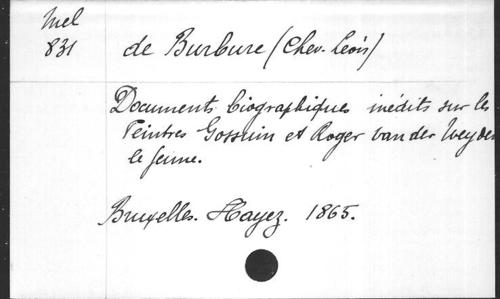 Mel
831
de Burbure (Chev. Léon)
Documents biographiques inédits sur les
Peintres Gossuin et Roger van der Weyden
le Jeune.
Bruxelles. Hayez. 1865.